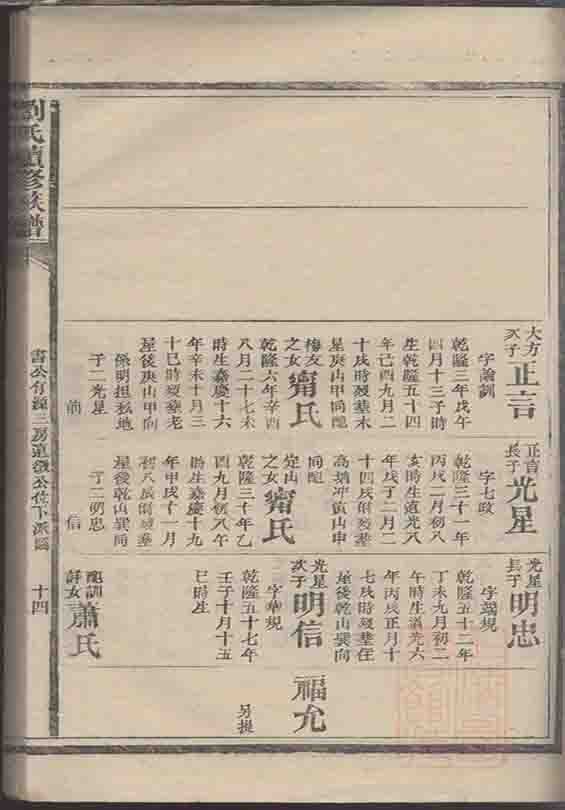 大方
次子
正言
字論訓
乾隆三年戊午
四月十三子時
生乾隆五十四
年己酉九月二
十戌時歿葬木
星庚山甲向配
梅友
之女
甯氏
乾隆六年辛酉
八月二十七未
時生嘉慶十六
年辛未十月三
十巳時歿葬老
屋後庚山甲向
係明担私地
子二光星
正言
長子
光星
字七政
乾隆三十一年
丙戌二月初八
亥時生道光八
年戊子二月二
十四戌時歿葬
高塘冲寅山申
向配
定山
之女
甯氏
乾隆三十年乙
酉九月初八午
時生嘉慶十九
年甲戌十一月
初八辰時歿葬
屋後乾山巽向
子二明忠
信
光星
長子
明忠
字端規
乾隆五十二年
丁未九月初二
午時生道光六
年丙戌正月十
七戌時歿葬住
屋後乾山巽向
光星
次子
明信
字華規
乾隆五十七年
壬子十月十五
巳時生
配訓
女
蕭氏
福允
另提
劉氏續修族譜
書公有源三房道公位下派圖
十四